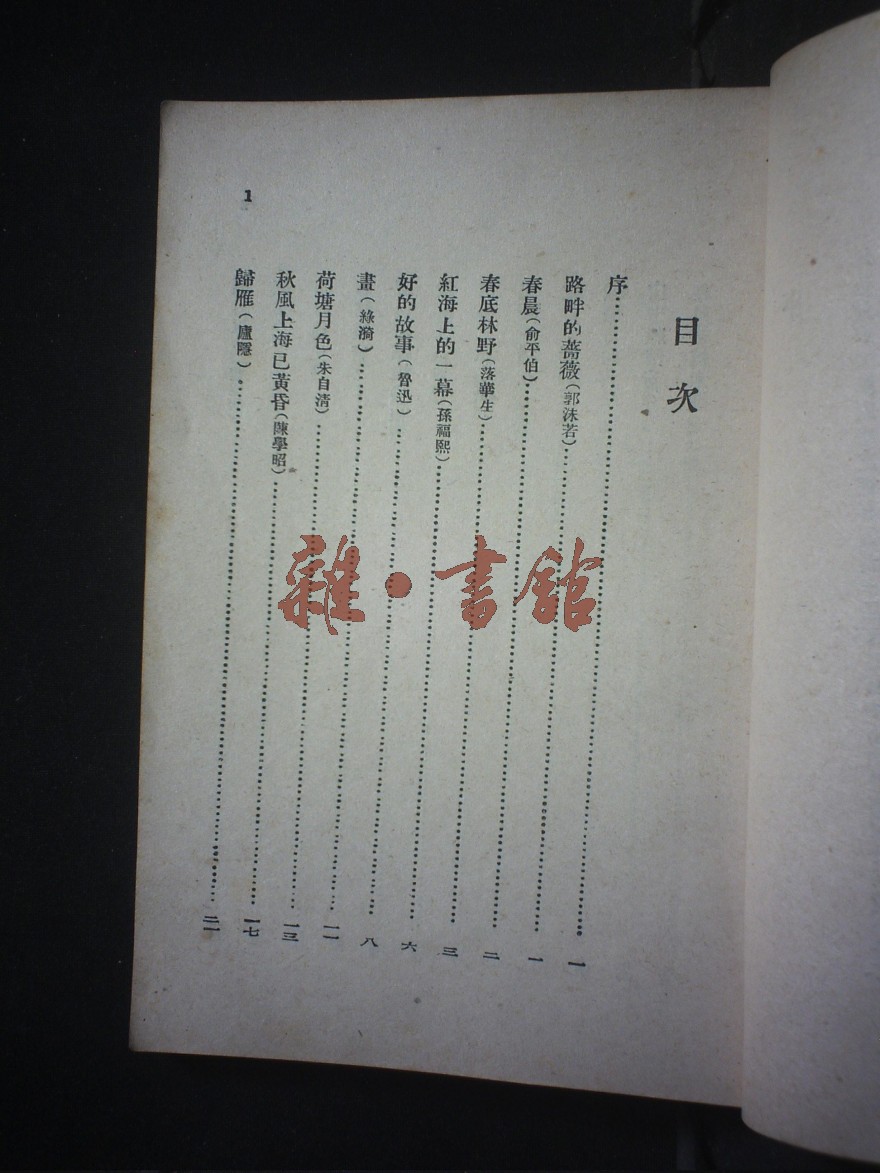 目次
序……一
路畔的薔薇(郭沫若)……一
春晨(俞平伯)……二
春底林野(落華生)……三
紅海上的一幕(孫福熙)……六
好的故事(魯迅)……八
畫(綠漪)……一一
荷塘月色(朱自清)……一三
秋風上海已黃昏(陳學昭)……一七
歸雁(廬隱)……二一
1
雜·書館